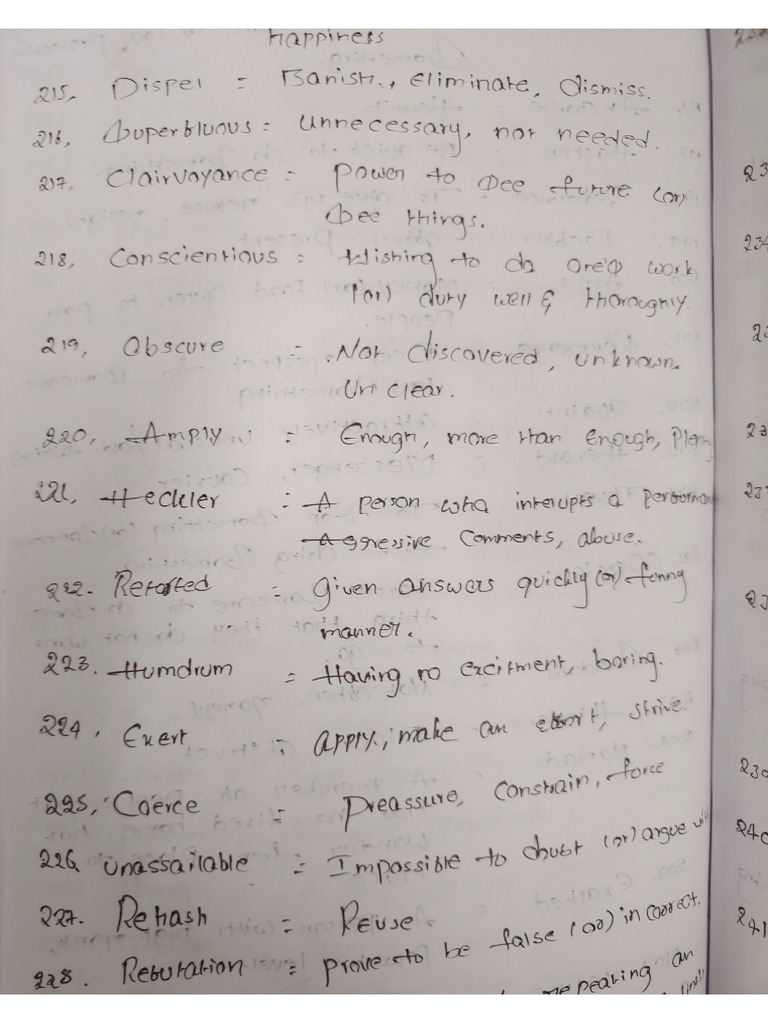 happiness
215, Dispel = Banish., eliminate, dismiss.
216, Superfluous = Unnecessary, not needed.
217, Clairvoyance = Power to see future (or)
see things.
218, Conscientious = Wishing to do one's work
(or) duty well & thoroughly.
219, Obscure = Not discovered, unknown.
Un clear.
220, Amply = Enough, more than enough,
221, Heckler = A person who interupts a
Aggressive comments, abuse.
222. Retorted = given answers quickly (or) funny
manner.
223. Humdrum = Having no excitment, boring.
224, Exert = apply, make an effort, strive.
225, Coerce = Preassure, constrain, force
226, unassailable = Impossible to doubt (or) argue
227. Rehash = Reuse.
228. Refutation = prove to be false (or) incorrect.
an